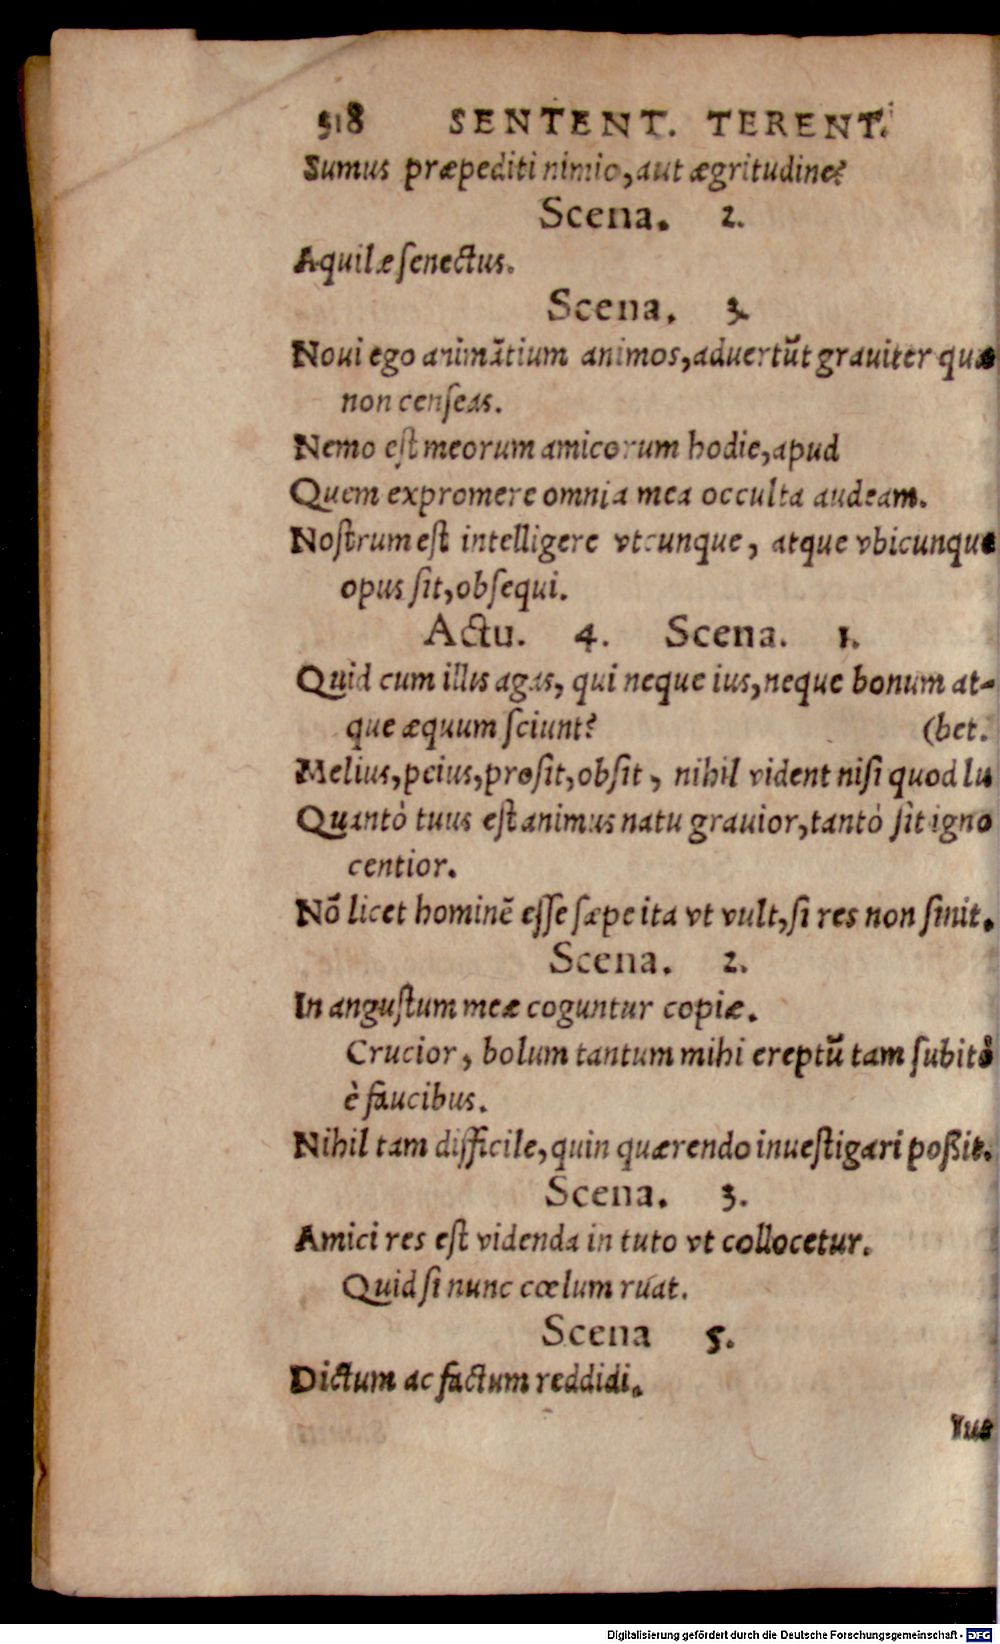 518 SENTENT. TERENT.
Sumus præpediti nimio, aut ægritudine?
Scena. 2.
Aquilæ ſenectus.
Scena. 3.
Noui ego animātium animos, aduertūt grauiter quæ
non cenſeas.
Nemo eſt meorum amicorum hodie, apud
Quem expromere omnia mea occulta audeam.
Noſtrum eſt intelligere vtcunque, atque vbicunque
opus ſit, obſequi.
Actu. 4. Scena. 1.
Quid cum illis agas, qui neque ius, neque bonum at-
que æquum ſciunt? (bet.
Melius, peius, proſit, obſit, nihil vident niſi quod lu
Quantò tuus eſt animus natu grauior, tantò ſit igno
centior.
Nō licet hominē eſſe ſæpe ita vt vult, ſi res non ſinit.
Scena. 2.
In anguſtum meæ coguntur copiæ.
Crucior, bolum tantum mihi ereptū tam ſubitò
è faucibus.
Nihil tam difficile, quin quærendo inueſtigari poßit.
Scena. 3.
Amici res eſt videnda in tuto vt collocetur.
Quid ſi nunc cœlum ruat.
Scena 5.
Dictum ac factum reddidi.
Ius
Digitalisierung gefördert durch die Deutsche Forschungsgemeinschaft - DFG